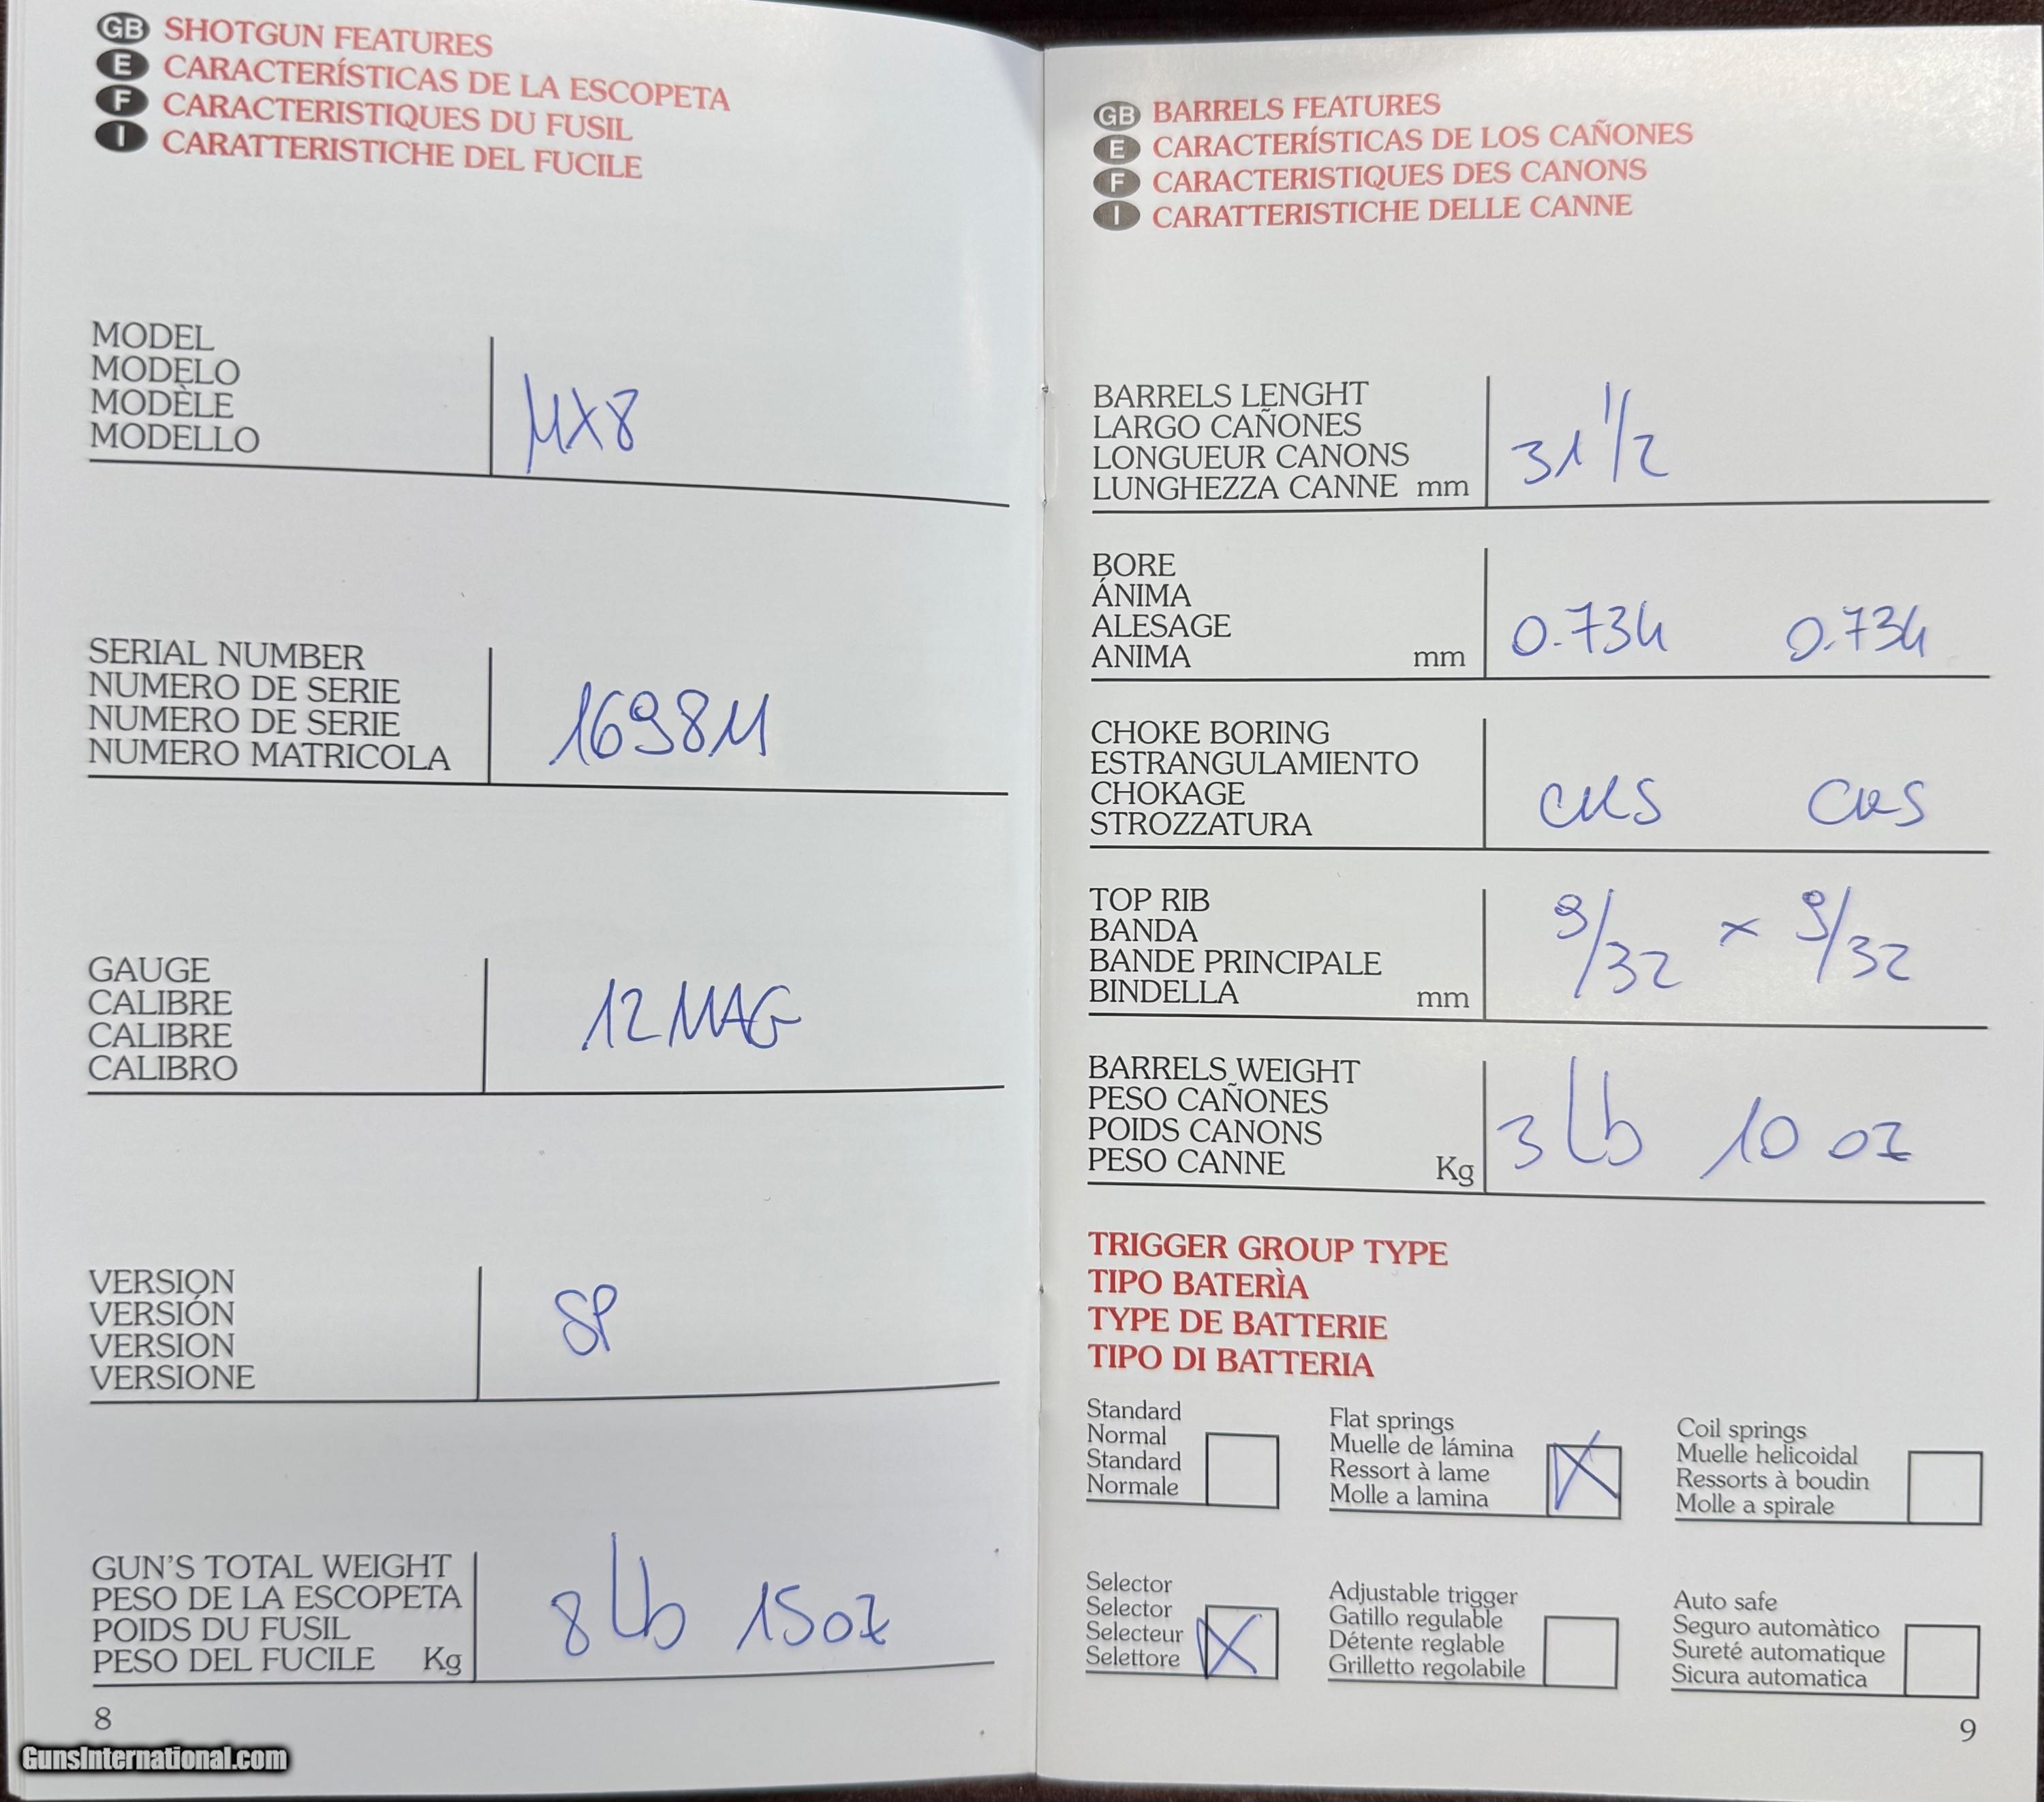 GB SHOTGUN FEATURES
E CARACTERÍSTICAS DE LA ESCOPETA
F CARACTERISTIQUES DU FUSIL
I CARATTERISTICHE DEL FUCILE
MODEL
MODELO
MODÈLE
MODELLO
MX8
SERIAL NUMBER
NUMERO DE SERIE
NUMERO DE SERIE
NUMERO MATRICOLA
1698M
GAUGE
CALIBRE
CALIBRE
CALIBRO
12 MAG
VERSION
VERSIÓN
VERSION
VERSIONE
SP
GUN'S TOTAL WEIGHT
PESO DE LA ESCOPETA
POIDS DU FUSIL
PESO DEL FUCILE Kg
8 Lb 15 oz
8
GunsInternational.com
GB BARRELS FEATURES
E CARACTERÍSTICAS DE LOS CAÑONES
F CARACTERISTIQUES DES CANONS
I CARATTERISTICHE DELLE CANNE
BARRELS LENGHT
LARGO CAÑONES
LONGUEUR CANONS
LUNGHEZZA CANNE mm
31 1/2
BORE
ÁNIMA
ALESAGE
ANIMA mm
0.734 0.734
CHOKE BORING
ESTRANGULAMIENTO
CHOKAGE
STROZZATURA
TOP RIB
BANDA
BANDE PRINCIPALE
BINDELLA mm
9/32 x 9/32
BARRELS WEIGHT
PESO CAÑONES
POIDS CANONS
PESO CANNE Kg
3 Lb 10 oz
TRIGGER GROUP TYPE
TIPO BATERÌA
TYPE DE BATTERIE
TIPO DI BATTERIA
Standard
Normal
Standard
Normale
Flat springs
Muelle de lámina
Ressort à lame
Molle a lamina
X
Coil springs
Muelle helicoidal
Ressorts à boudin
Molle a spirale
Selector
Selector
Selecteur
Selettore
X
Adjustable trigger
Gatillo regulable
Détente reglable
Grilletto regolabile
Auto safe
Seguro automàtico
Sureté automatique
Sicura automatica
9